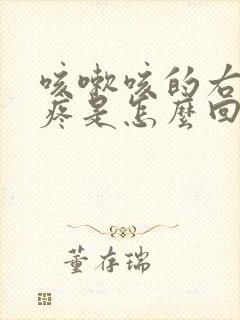 咳嗽咳的右
疼是怎麼回
董存瑞